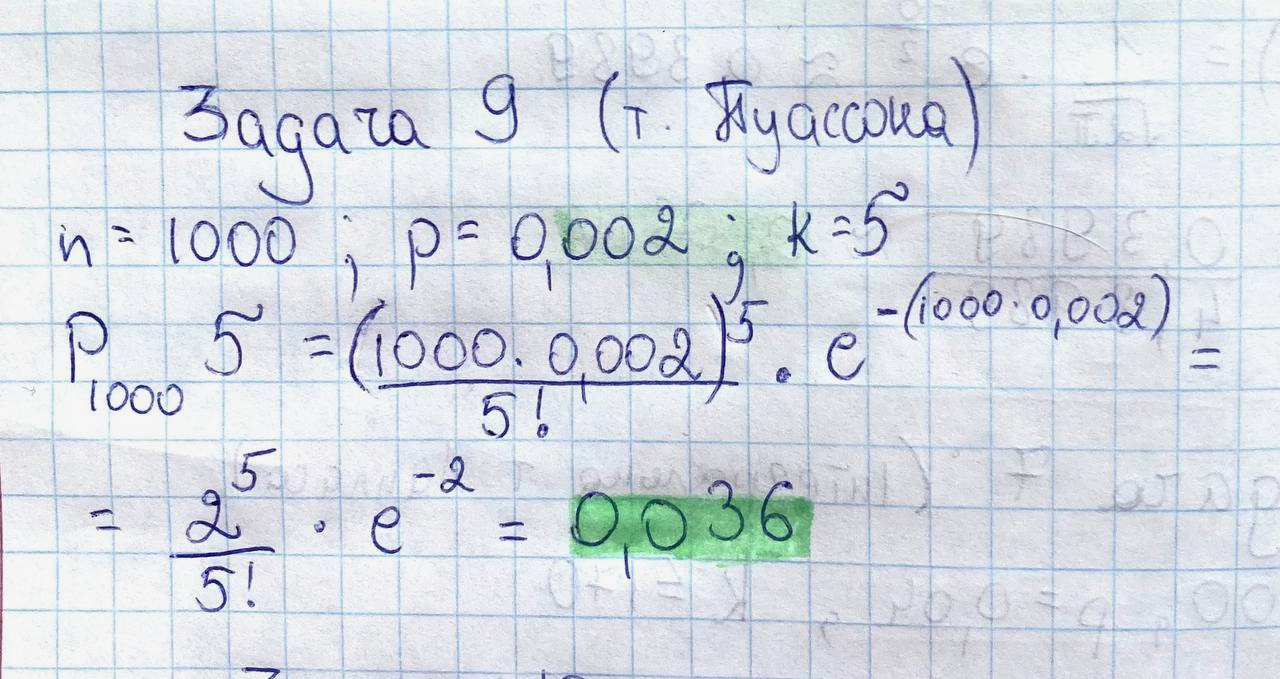 Задача 9 (т. Пуассона)
n = 1000 ; p = 0,002 ; k = 5
P₁₀₀₀ 5 = (1000 · 0,002)⁵ / 5! · e^-(1000 · 0,002) =
= 2⁵ / 5! · e⁻² = 0,036